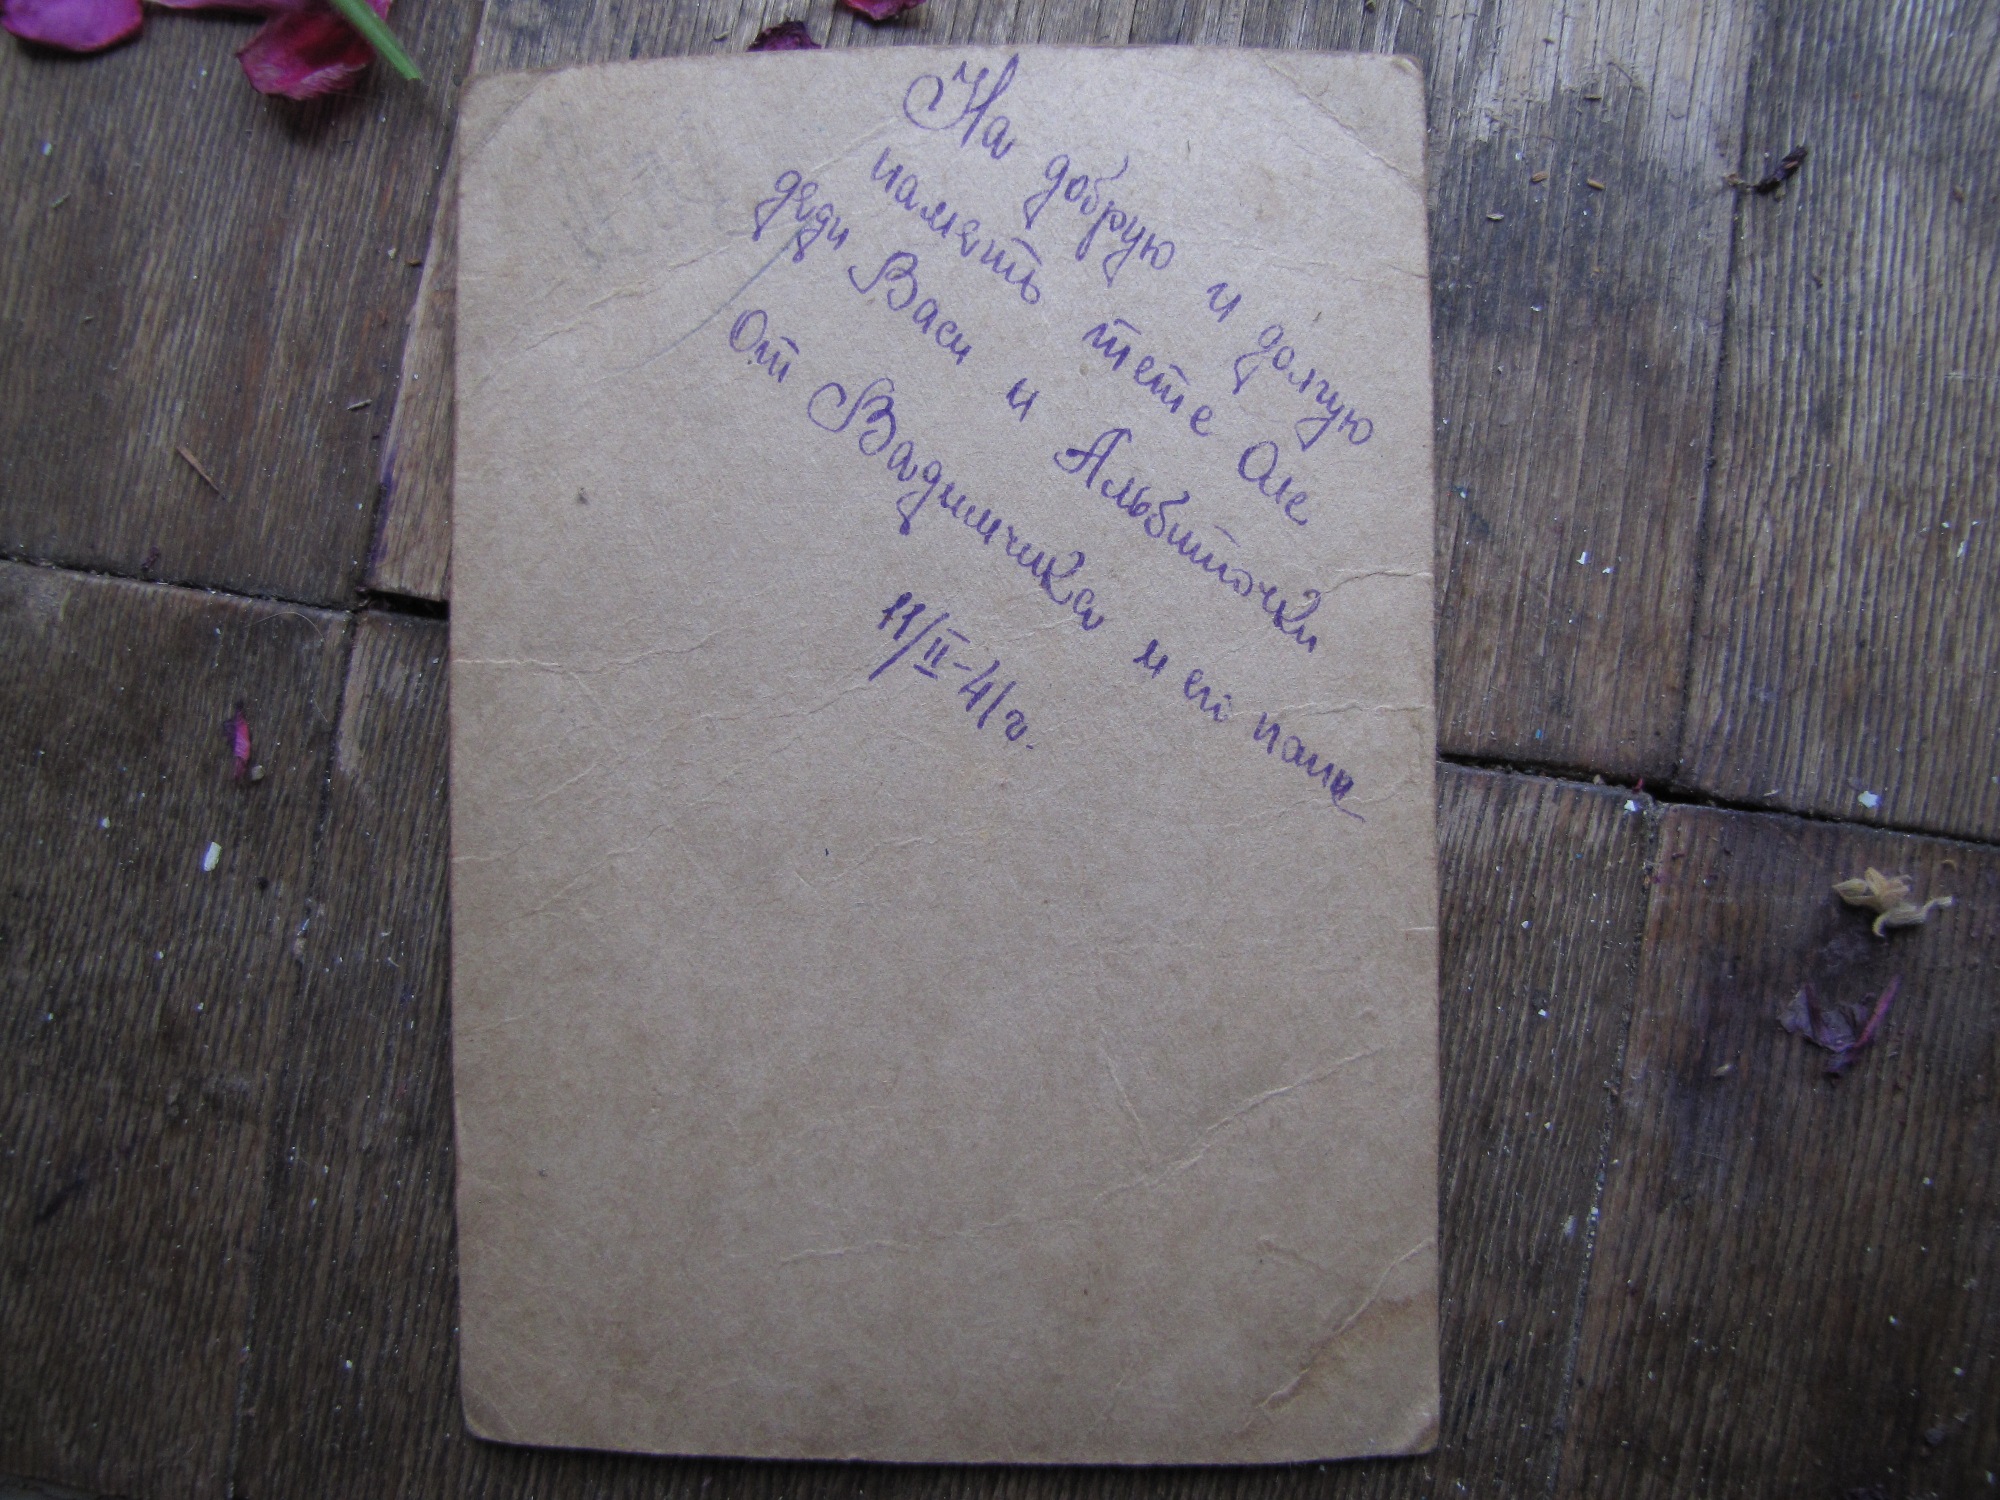 На добрую и долгую
память тете Оле
дяди Васи и Альбиночки
От Вадимчика и его папа
11/II-41 г.